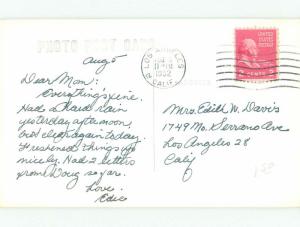 PHOTO POST CARD
Aug 5
LOS ANGELES
1952
CALIF.
UNITED STATES
POSTAGE
2 CENTS 2
Dear Mom:
Everything's fine.
Had a hard rain
yesterday afternoon,
but clear again today.
Freshened things up
nicely. Had 2 letters
from Doug so far.
Love,
Edie
Mrs. Edith W. Davis
1749 No. Serrano Ave
Los Angeles 28
Calif